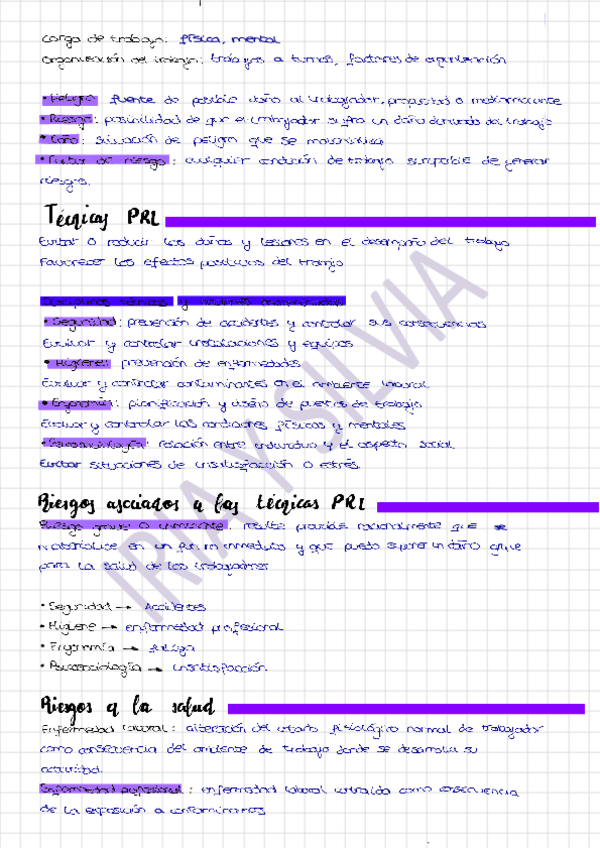 carga de trabajo: física, mental
organización del trabajo: trabajos a turnos, factores de organización
• Peligro: fuente de posible daño al trabajador, propiedad o medioambiente
• Riesgo: posibilidad de que el trabajador sufra un daño derivado del trabajo
• Daño: situación de peligro que se materializa
• Factor de riesgo: cualquier condición de trabajo susceptible de generar
riesgos.
Técnicas PRL
Evitar o reducir los daños y lesiones en el desempeño del trabajo
Favorecer los efectos positivos del trabajo
Disciplinas técnicas y
• Seguridad: prevención de accidentes y controlar sus consecuencias
Evaluar y controlar instalaciones y equipos
• Higiene: prevención de enfermedades
Evaluar y controlar contaminantes en el ambiente laboral
• Ergonomía: planificación y diseño de puestos de trabajo
Evaluar y controlar las condiciones físicas y mentales
• Psicosociología: relación entre individuo y el aspecto social
Evitar situaciones de insatisfacción o estrés
IRIA Y SILVIA
Riesgos asciados a las técnicas PRL
Riesgo grave o inminente: resulte probable racionalmente que se
materialice en un futuro inmediato y que pueda suponer un daño grave
para la salud de los trabajadores
• Seguridad → Accidentes
• Higiene → enfermedad profesional
• Ergonomía → fatiga
• Psicosociología → insatisfacción
Riesgos a la salud
Enfermedad laboral: alteración del estado fisiológico normal de trabajador
como consecuencia del ambiente de trabajo donde se desarrolla su
actividad.
Enfermedad profesional: enfermedad laboral contraída como consecuencia
de la exposición a contaminantes